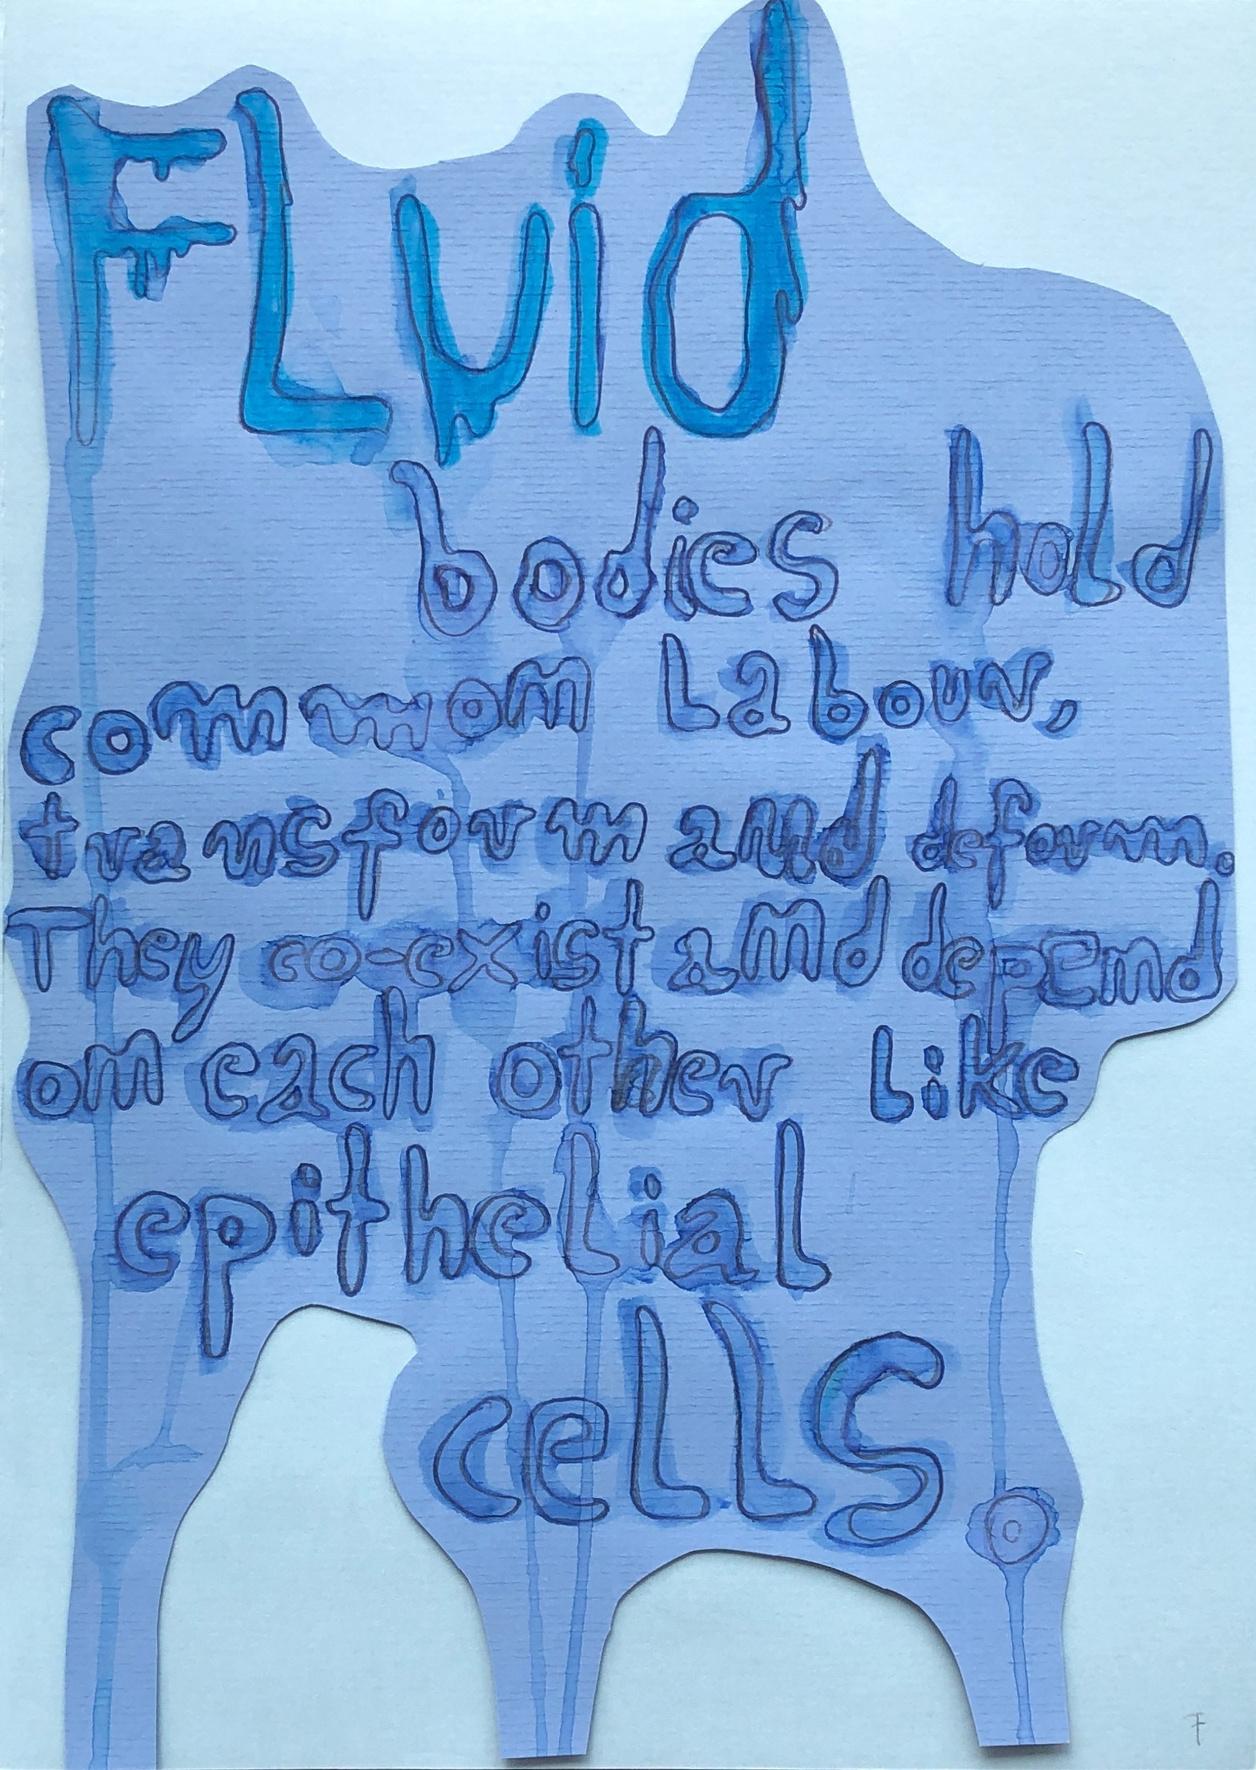 FLuid
bodies hold
common Labour,
transform and deform.
They co-exist and depend
on each other Like
epithelial
cells
F